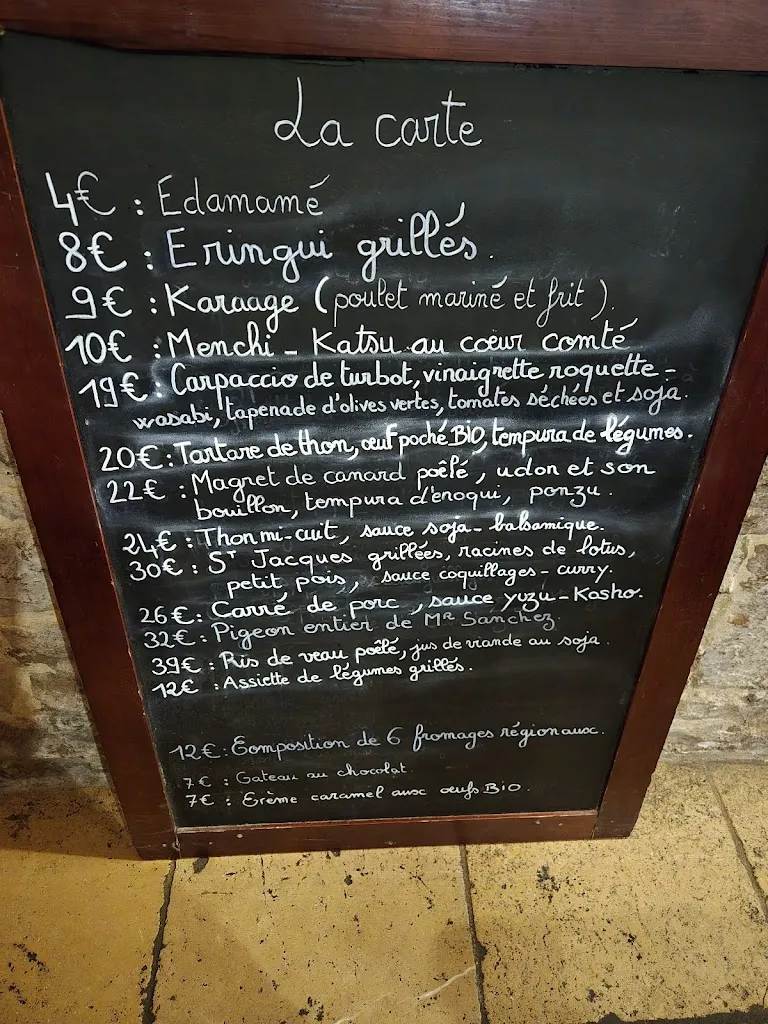 La carte
4€ : Edamamé
8€ : Eringui grillés.
9€ : Karaage (poulet mariné et frit).
10€ : Menchi - Katsu au cœur comté
19€ : Carpaccio de turbot, vinaigrette roquette -
wasabi, tapenade d'olives vertes, tomates séchées et soja.
20€ : Tartare de thon, œuf poché BiO, tempura de légumes.
22€ : Magret de canard poêlé, udon et son
bouillon, tempura d'enoqui, ponzu.
24€ : Thon mi-cuit, sauce soja - balsamique.
30€ : St Jacques grillées, racines de lotus,
petit pois, sauce coquillages - curry.
26€ : Carré de porc, sauce yuzu - Kosho.
32€ : Pigeon entier de MR Sanchez.
39€ : Ris de veau poêlé, jus de viande au soja.
12€ : Assiette de légumes grillés.
12€ : Composition de 6 fromages régionaux.
7€ : Gateau au chocolat.
7€ : Crème caramel aux œufs BiO.